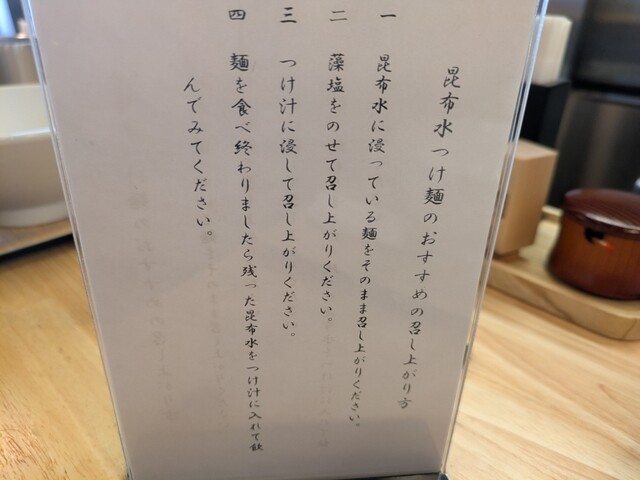 昆布水つけ麺のおすすめの召し上がり方
一 昆布水に浸っている麺をそのまま召し上がりください。
二 藻塩をのせて召し上がりください。
三 つけ汁に浸して召し上がりください。
四 麺を食べ終わりましたら残った昆布水をつけ汁に入れて飲
んでみてください。